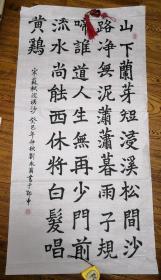 山下蘭芽短浸溪松間沙
路淨無泥瀟瀟暮雨子規
啼誰道人生無再少門前
流水尚能西休將白髮唱
黃鷄
宋蘇軾浣溪沙 癸巳年仲秋劉永書于